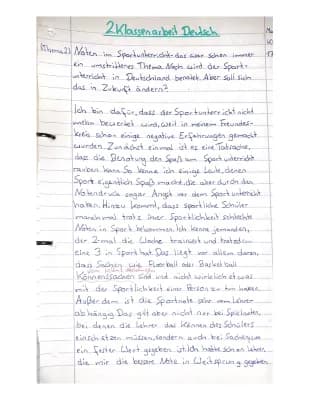 2. Klassenarbeit Deutsch
(Thema 2) Noten im Sportunterricht - das war schon immer
ein umstrittenes Thema. Noch wird der Sport-
unterricht in Deutschland benotet. Aber soll sich
das in Zukunft ändern?
Ich bin dafür, dass der Sportunterricht nicht
mehr bewertet wird, weil in meinem Freundes-
kreis schon einige negative Erfahrungen gemacht
wurden. Zunächst einmal ist es eine Tatsache,
dass die Benotung den Spaß am Sportunterricht
rauben kann. So kenne ich einige Leute, denen
Sport eigentlich Spaß macht, die aber durch den
Notendruck sogar Angst vor dem Sportunterricht
haben. Hinzu kommt, dass sportliche Schüler
manchmal trotz ihrer Sportlichkeit schlechte
Noten in Sport bekommen. Ich kenne jemanden,
der 2-mal die Woche trainiert und trotzdem
eine 3 in Sport hat. Das liegt vor allem daran,
dass Sachen wie Floorball oder Basketball
Könnenssachen sind und nicht wirklich etwas
mit der Sportlichkeit einer Person zu tun haben.
Außerdem ist die Sportnote sehr vom Lehrer
abhängig. Das gilt aber nicht nur bei Spielnoten,
bei denen die Lehrer das Können des Schülers
einschätzen müssen, sondern auch bei Sachen, wo
ein fester Wert gegeben ist. Ich hatte schon Lehrer,
die mir die bessere Note in Weitsprung gegeben